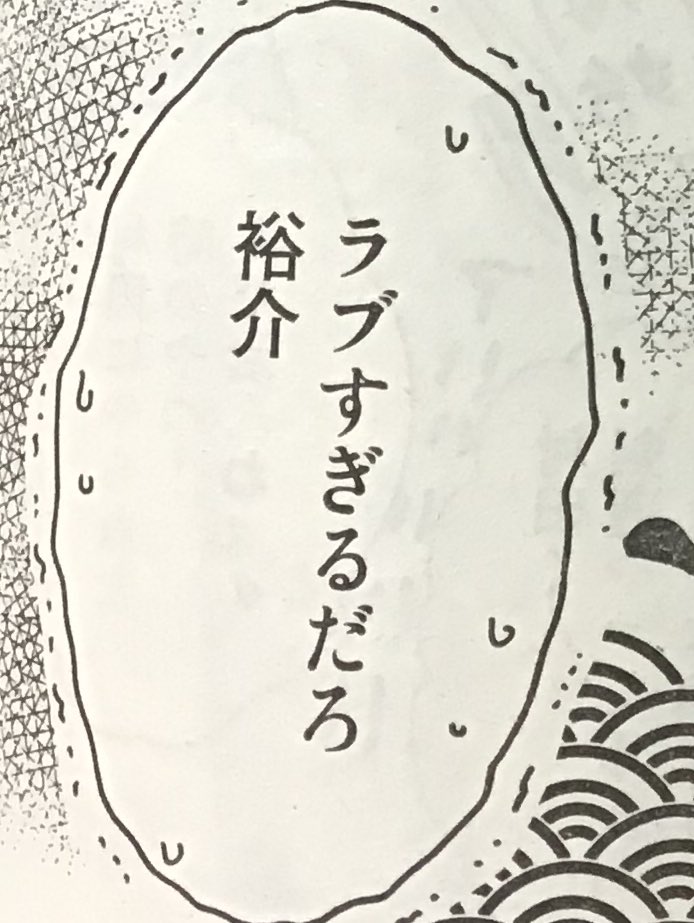 ラブすぎるだろ
裕介